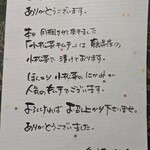 ありがとうございます。
本日、同梱させて頂きました
「小松菜キムチ」は 減農薬の
小松菜で 漬けております。
ほんのり 小松菜の にがみが
人気の キムチでございます。
よろしければ お召し上がり下さいませ。
ありがとうございました。